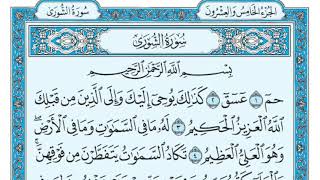 الجزء الخامس والعشرون
سورة الشورى
سُورَةُ الشُّورَىٰ
بِسْمِ اللَّهِ الرَّحْمَٰنِ الرَّحِيمِ
حمٓ ١ عٓسٓقٓ ٢ كَذَٰلِكَ يُوحِىٓ إِلَيْكَ وَإِلَى ٱلَّذِينَ مِن قَبْلِكَ
ٱللَّهُ ٱلْعَزِيزُ ٱلْحَكِيمُ ٣ لَهُۥ مَا فِى ٱلسَّمَٰوَٰتِ وَمَا فِى ٱلْأَرْضِ ۖ
وَهُوَ ٱلْعَلِىُّ ٱلْعَظِيمُ ٤ تَكَادُ ٱلسَّمَٰوَٰتُ يَتَفَطَّرْنَ مِن فَوْقِهِنَّ ۚ